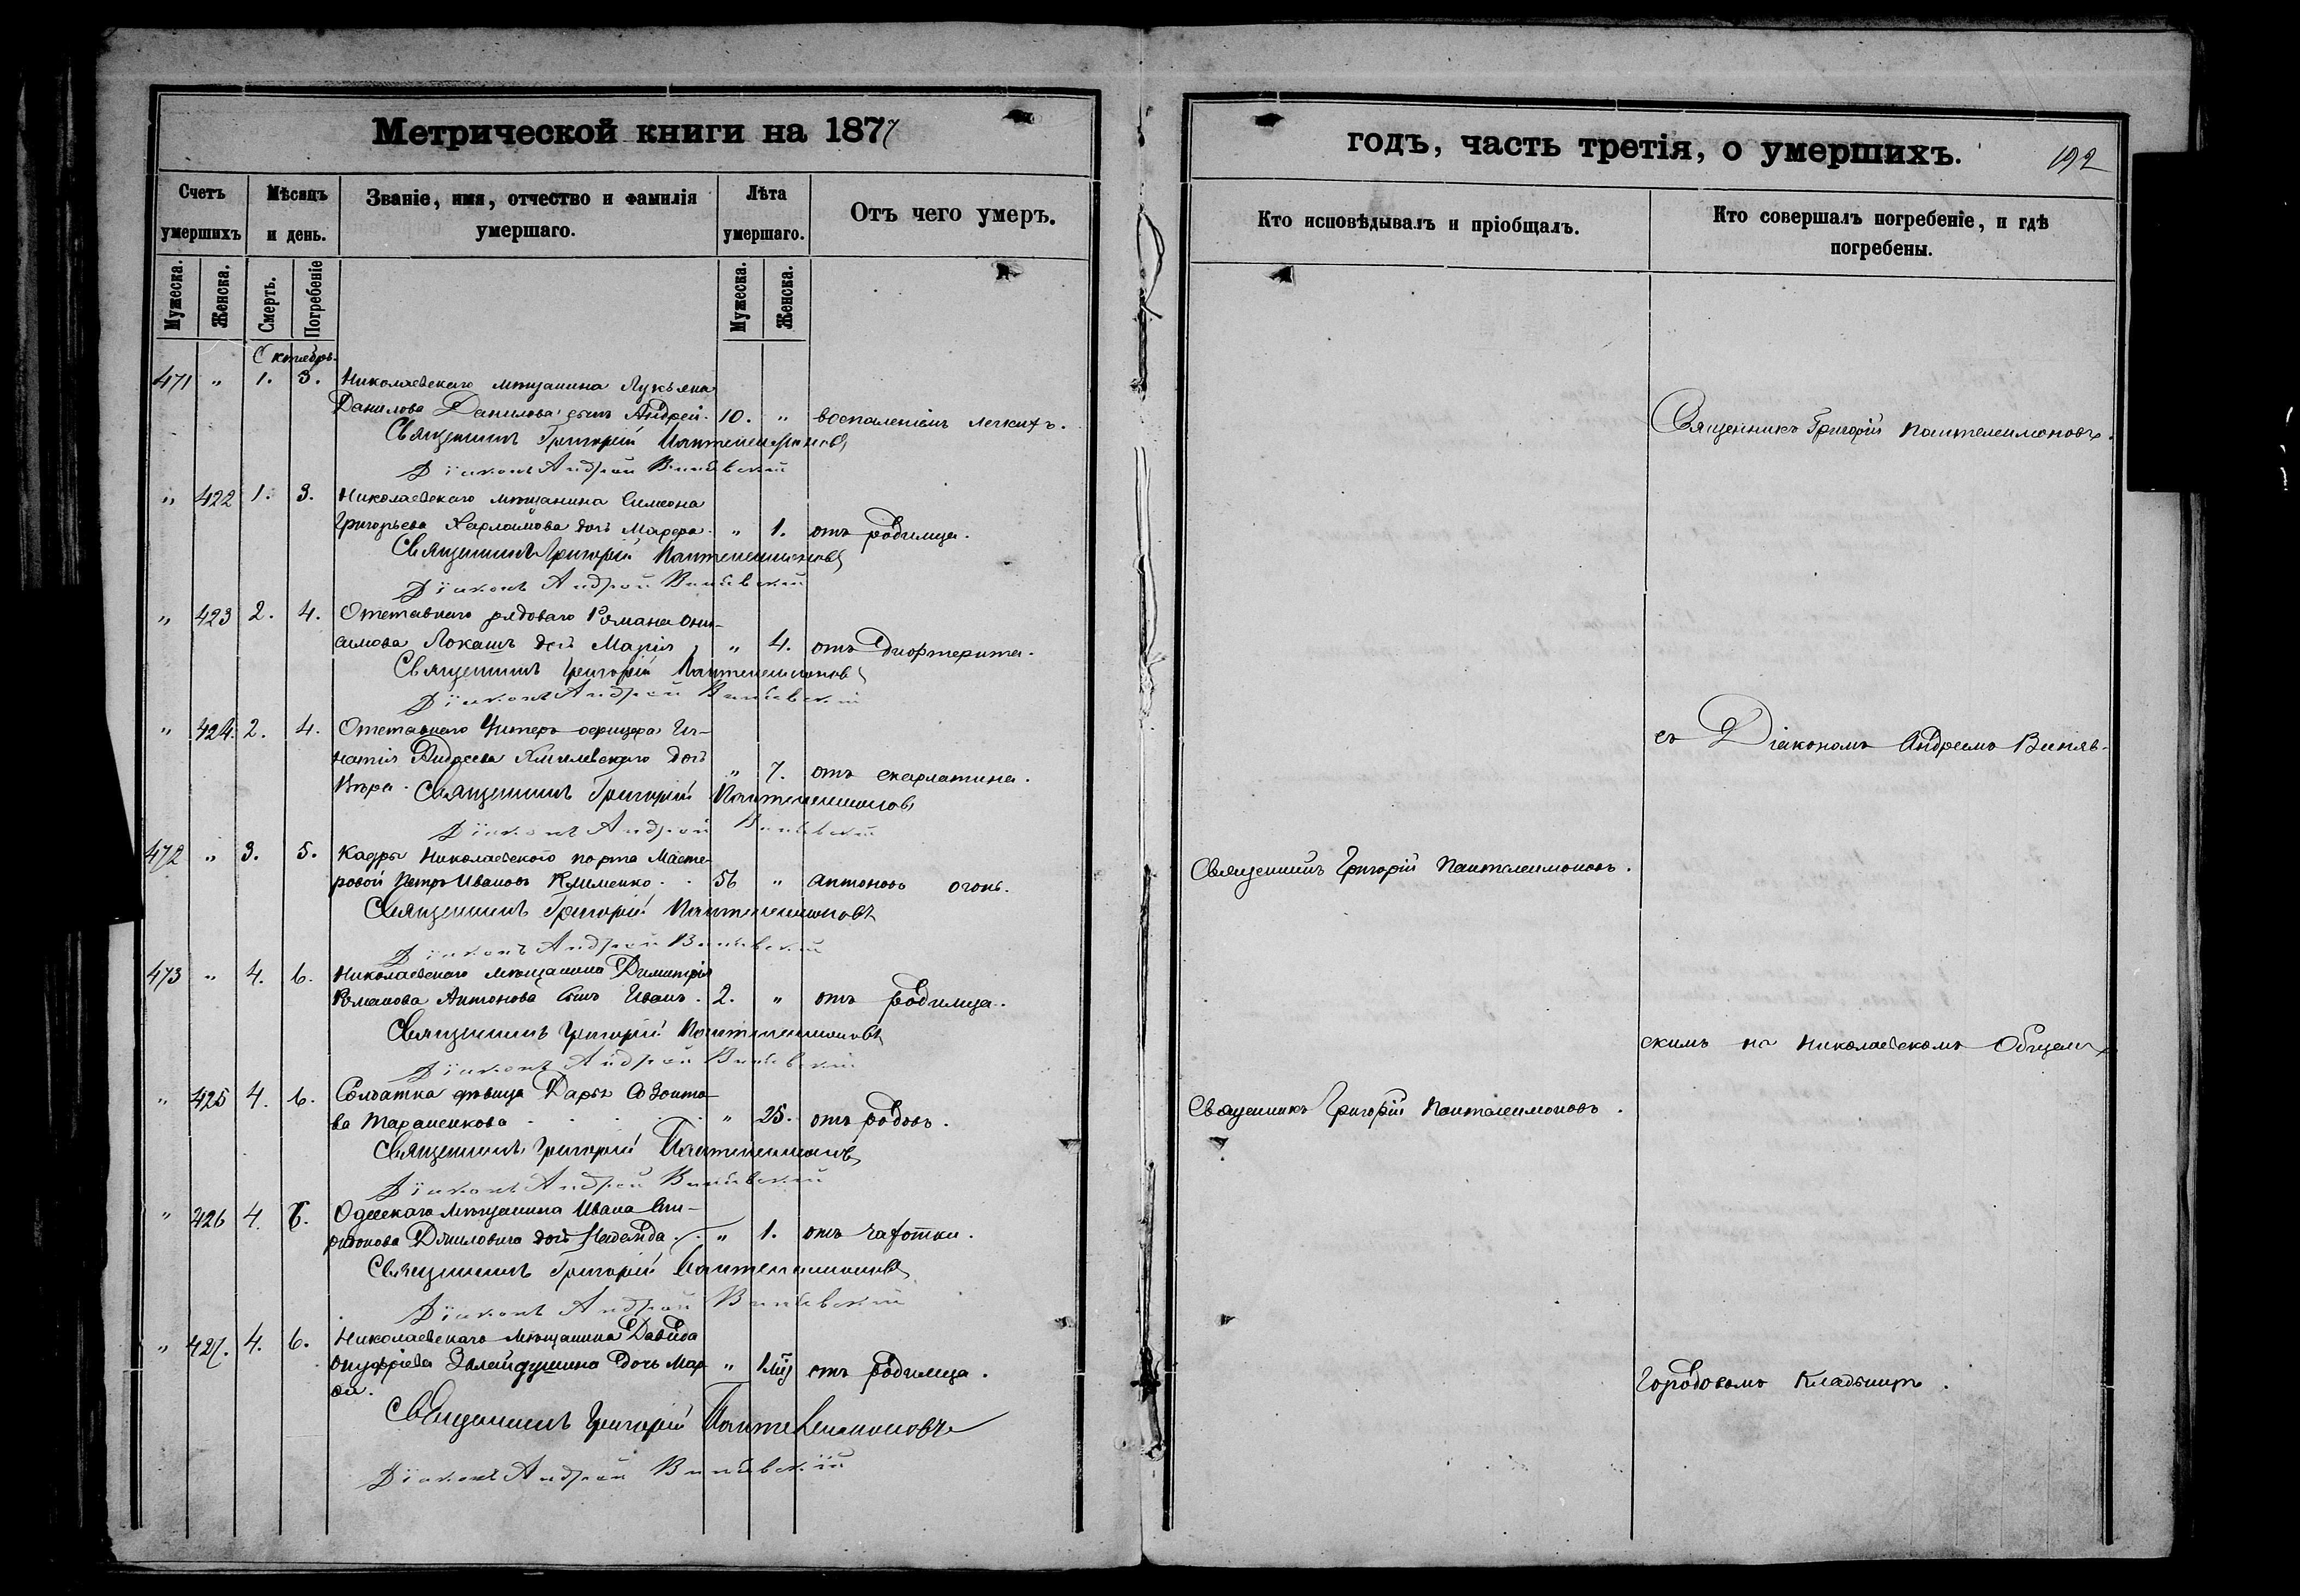 Метрической книги на 1877
годъ, часть третія, о умершихъ.
192
Счетъ умершихъ
Мѣсяцъ и день.
Званіе, имя, отчество и фамилія умершаго.
Лѣта умершаго.
Отъ чего умеръ.
Кто исповѣдывалъ и пріобщалъ.
Кто совершалъ погребеніе, и гдѣ погребены.
Мужеска.
Женска.
Смерть.
Погребеніе
Мужеска.
Женска.
Октябрь.
471 " 1. 3. Николаевскаго мѣщанина Лукьяна
Данилова Данилова сынъ Андрей. 10. " воспаленіемъ легкихъ.
Священникъ Григорій Пантелеимоновъ
Діаконъ Андрей Винявскій
Священникъ Григорій Пантелеимоновъ.
" 422 1. 3. Николаевскаго мѣщанина Симеона
Григорьева Харламова дочь Марфа. " 1. отъ родимца.
Священникъ Григорій Пантелеимоновъ
Діаконъ Андрей Винявскій
" 423 2. 4. Отставнаго рядоваго Романа Они-
симова Локашъ дочь Марія " 4. отъ дифтерита.
Священникъ Григорій Пантелеимоновъ
Діаконъ Андрей Винявскій
" 424. 2. 4. Отставнаго Унтеръ офицера Иг-
натія Андреева Хмилевскаго дочь " 7. отъ скарлатина.
Вѣра. Священникъ Григорій Пантелеимоновъ
Діаконъ Андрей Винявскій
съ Діакономъ Андреемъ Виняв-
472 " 3. 5. Кадры Николаевского порта Масте-
ровой Петръ Ивановъ Клименко. . 56 " антоновъ огонь.
Священникъ Григорій Пантелеимоновъ
Діаконъ Андрей Винявскій
Священникъ Григорій Пантелеимоновъ.
473 " 4. 6. Николаевскаго мѣщанина Димитрія
Романова Антонова сынъ Иванъ. 2. " отъ родимца.
Священникъ Григорій Пантелеимоновъ
Діаконъ Андрей Винявскій
скимъ на Николаевскомъ Общемъ
" 425 4. 6. Солдатка дѣвица Дарья Созонто-
ва Тараненкова . . . . . " 25. отъ родовъ.
Священникъ Григорій Пантелеимоновъ
Діаконъ Андрей Винявскій
Священникъ Григорій Пантелеимоновъ.
" 426 4. 6. Одесскаго мѣщанина Ивана Спи-
ридонова дочь Надежда. " 1. отъ чахотки.
Священникъ Григорій Пантелеимоновъ
Діаконъ Андрей Винявскій
" 427. 4. 6. Николаевскаго мѣщанина Давида
Онуфріева дочь Мар- " отъ родимца.
Священникъ Григорій Пантелеимоновъ
Діаконъ Андрей Винявскій
Городовомъ Кладбищѣ.